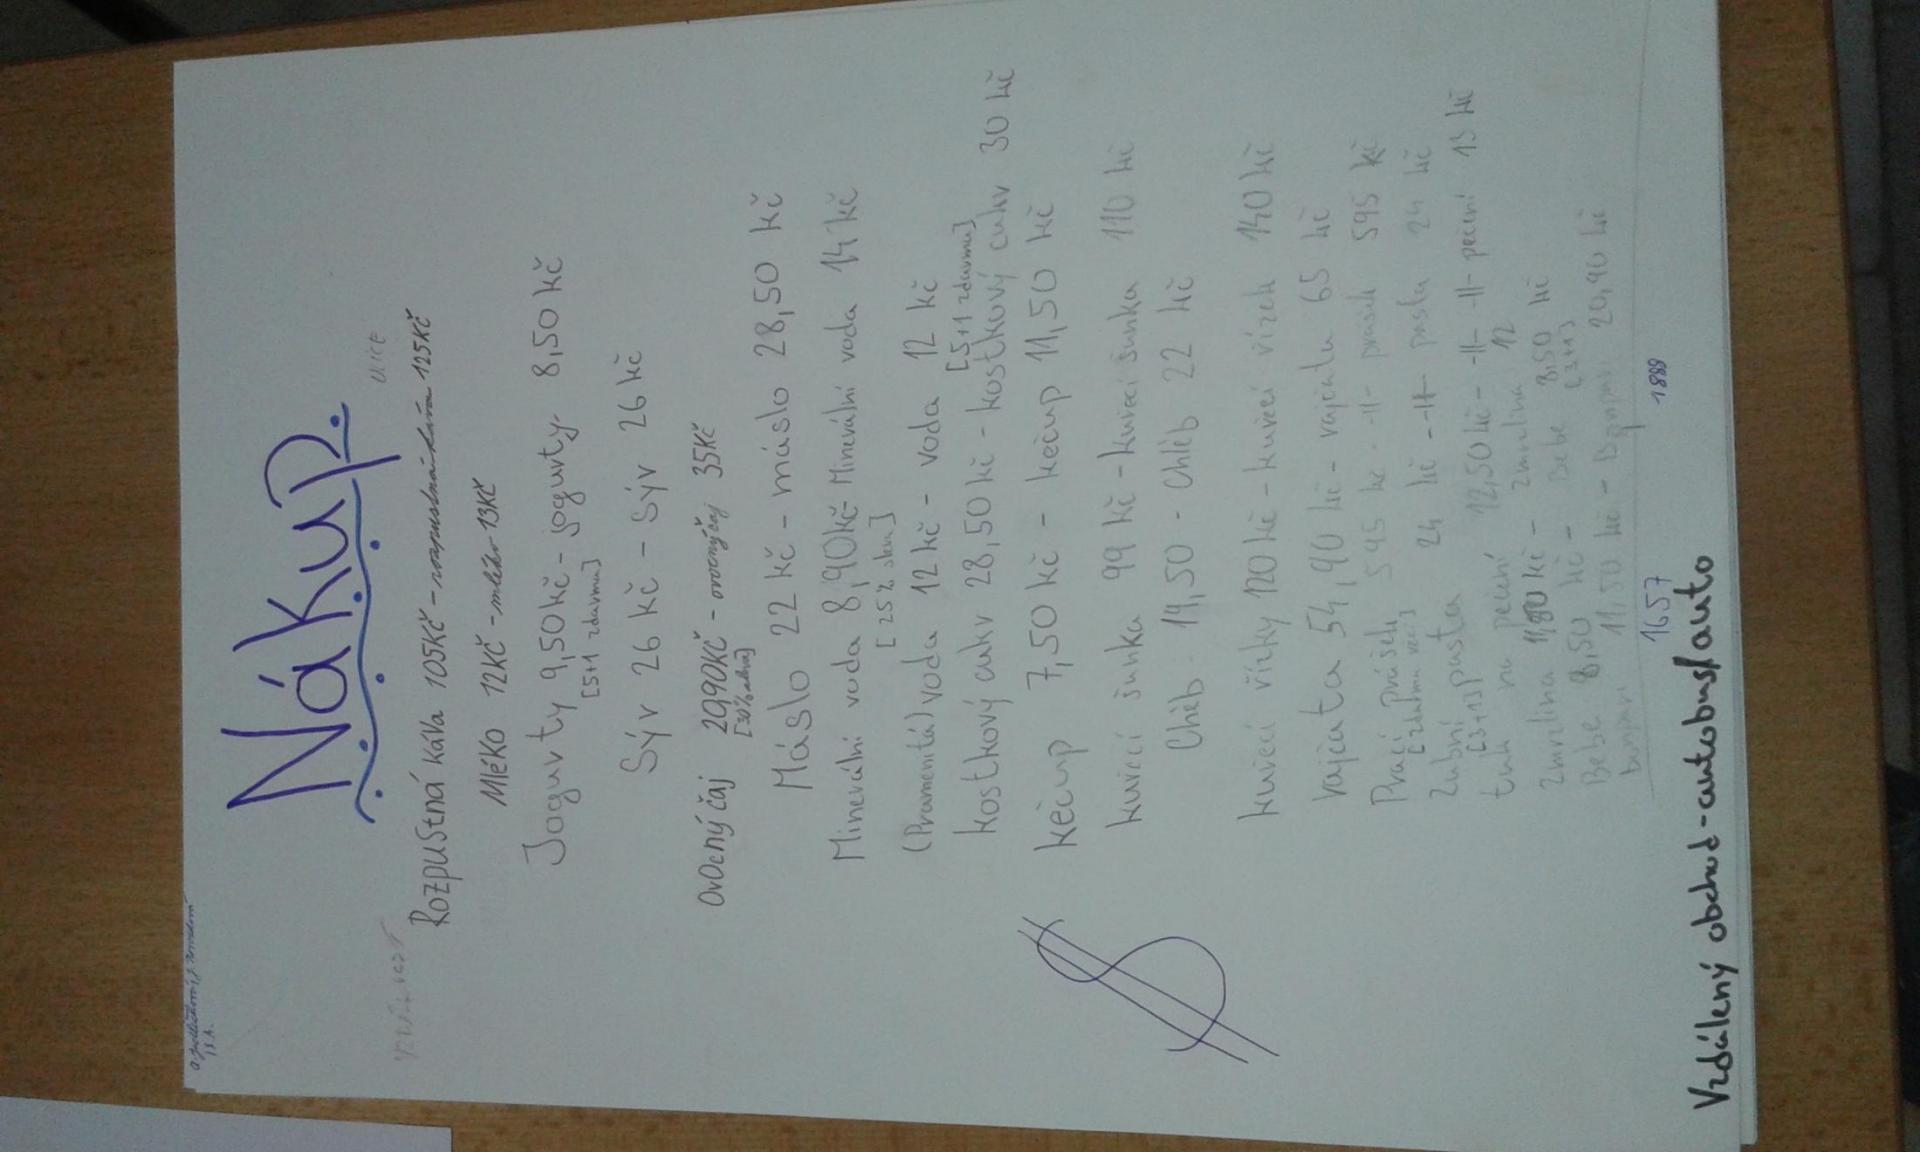 Nákup.
více
Rozpustná káva 105Kč - rozpustná káva 125Kč
Mléko 12Kč - mléko 13Kč
Jogurty 9,50kč - jogurty 8,50kč
[5+1 zdarma]
Sýr 26 kč - Sýr 26 kč
Ovocný čaj 29,90Kč - ovocný čaj 35Kč
[30% sleva]
Máslo 22 kč - máslo 28,50 kč
Minerální voda 8,90kč - Minerální voda 14 kč
[25% slev.]
(Pramenitá) voda 12 kč - voda 12 kč
[5+1 zdarma]
kostkový cukr 28,50 kč - kostkový cukr 30 kč
kečup 7,50 kč - kečup 11,50 kč
kuřecí šunka 99 kč - kuřecí šunka 110 kč
Chléb - 14,50 - Chléb 22 kč
kuřecí řízky 120 kč - kuřecí řízek 140 kč
Vajíčka 54,90 kč - vajíčka 65 kč
Prací prášek 545 kč - -||- prášek 595 kč
Zubní pasta 24 kč - -||- pasta 24 kč
[3+1]
tuk na pečení 12,50 kč - -||- -||- pečení 13 kč
Zmrzlina 11,80 kč - zmrzlina 12
Bebe 8,50 kč - Bebe 8,50 kč
[3+1]
11,50 kč - 20,90 kč
1657 1889
Vzdálený obchod - autobus/auto